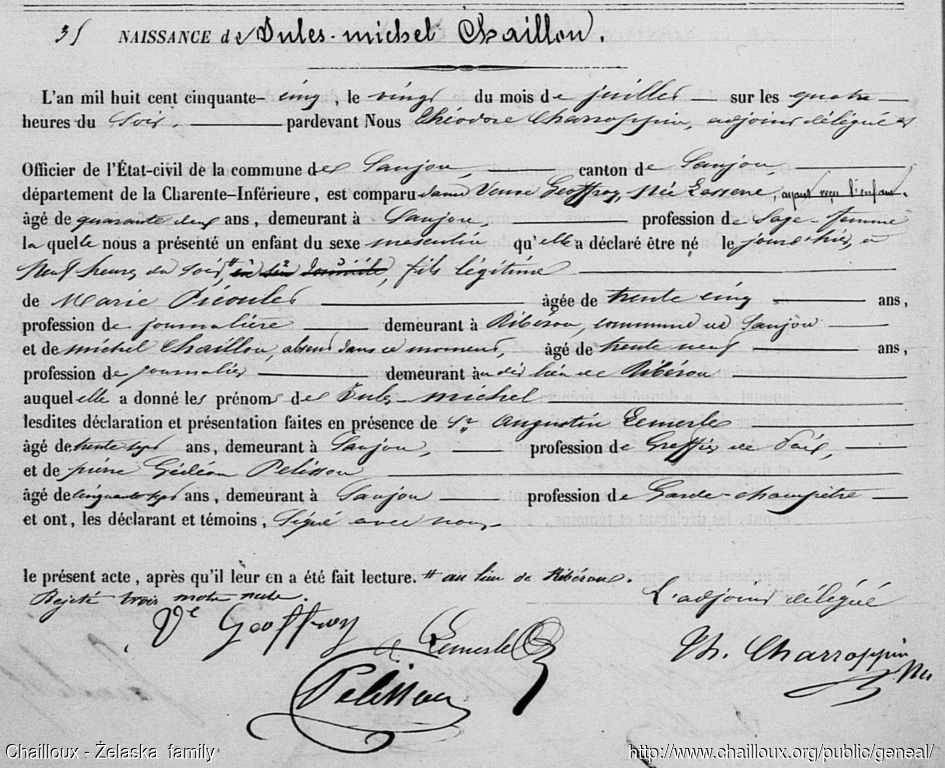 35 NAISSANCE de Jules-michel Chaillou.
L'an mil huit cent cinquante-cinq, le vingt du mois de juillet sur les quatre
heures du Soir. pardevant Nous Théodore Charroppin, adjoint délégué et
Officier de l'État-civil de la commune de Saujon, canton de Saujon,
département de la Charente-Inférieure, est comparu dame Veuve Geoffroy, née, ayant reçu l'enfant.
âgé de quarante deux ans, demeurant à Saujon, profession de Sage-femme
la quelle nous a présenté un enfant du sexe masculin qu'elle a déclaré être né le jour d'hier, à
neuf heures du Soir, # en son domicile, fils légitime
de Marie âgée de trente cinq ans,
profession de journalière demeurant à Ribérou, commune de Saujon
et de michel Chaillou, absent dans ce moment, âgé de trente neuf ans,
profession de journalier demeurant au dit lieu de Ribérou
auquel elle a donné les prénoms de Jules-michel
lesdites déclaration et présentation faites en présence de Sr. Augustin Lemerle
âgé de trente sept ans, demeurant à Saujon, profession de Greffier de Paix,
et de pierre Gédéon Pelisson
âgé de cinquante sept ans, demeurant à Saujon profession de Garde-champêtre
et ont, les déclarant et témoins, Signé avec nous.
le présent acte, après qu'il leur en a été fait lecture. # au lieu de Ribérou.
Rejeté trois mots nuls.
L'adjoint délégué
Ve Geoffroy
Lemerle
Th. Charroppin
Pelisson
Chailloux - Želaska family
http://www.chailloux.org/public/geneal/